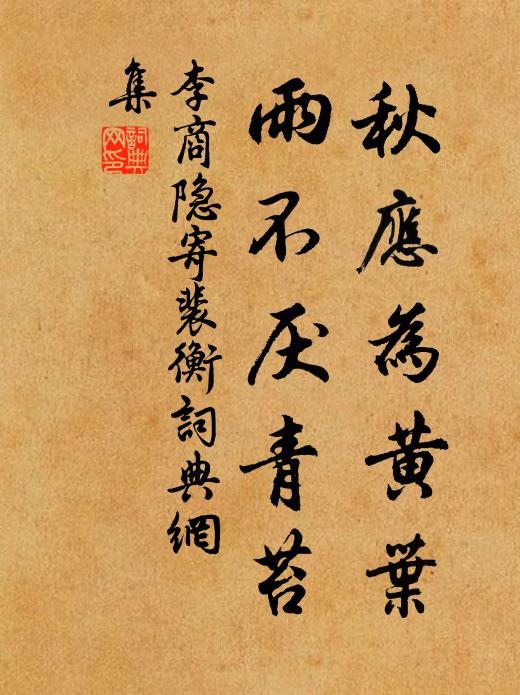 秋應為黄葉
雨不厌青苔
李商隐寄裴衡詞典網
集
詞典網印